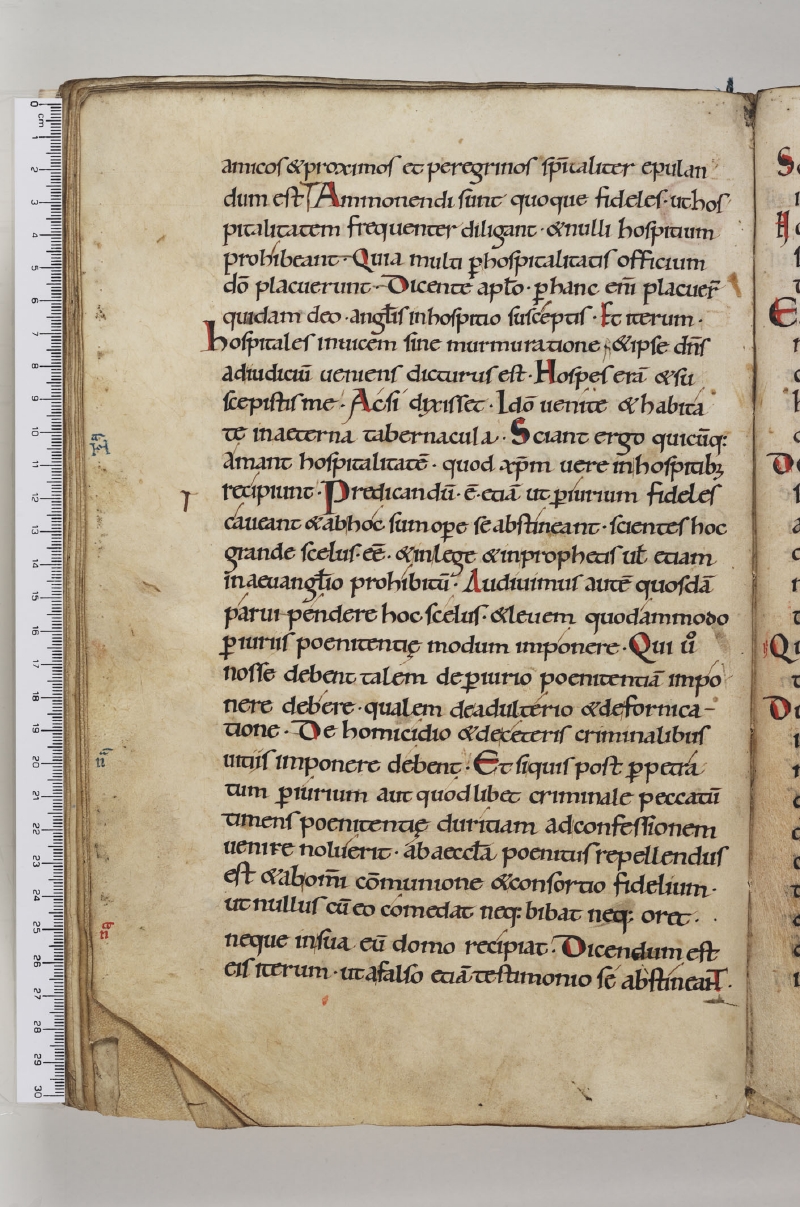 amicos & proximos et peregrinos sp̄italiter epulan
dum est Ammonendi sunt quoque fideles · ut hos
pitalitatem frequenter diligant · & nulli hospitium
prohibeant · Quia multi ꝑ hospitalitatis officium
dō placuerunt · Dicente apl̄o · ꝑ hanc eni̅ placuer̄
quidam deo · angl̄is in hospitio susceptis · Et iterum ·
hospitales inuicem sine murmuratione · & ipse dn̄s
ad iudiciū ueniens dicturus est · Hospes erā & su
scepistis me · Ac si dixisset · Idō uenite & habita
te in aeterna tabernacula · Sciant ergo quicūq;
amant hospitalitatē · quod xp̄m uere in hospitib;
recipiunt · Predicandū · ē · etiā ut ꝑiurium fideles
caueant & ab hoc summope se abstineant · scientes hoc
grande scelus · eē · & in lege & in prophetis ut̄ etiam
in aeuangl̄io prohibitū · Audiuimus autē quosdā
parui pendere hoc scelus · & leuem quodammodo
ꝑiuriis poenitentię modum imponere · Qui u̅o
nosse debent talem de ꝑiurio poenitentiā impo
nere debere · qualem de adulterio & de fornica-
tione · De homicidio & de ceteris criminalibus
uitiis imponere debent · Et siquis post ꝑpetra
tum ꝑiurium aut quodlibet criminale peccatū
timens poenitentię duritiam ad confessionem
uenire noluerit · ab aeccl̄a poenitus repellendus
est & ab hom̄i cōmunione & consortio fidelium ·
ut nullus cū eo comedat neq; bibat neq; oret ·
neque in sua eū domo recipiat · Dicendum est
eis iterum · ut a falso etiā testimonio se abstineant ·